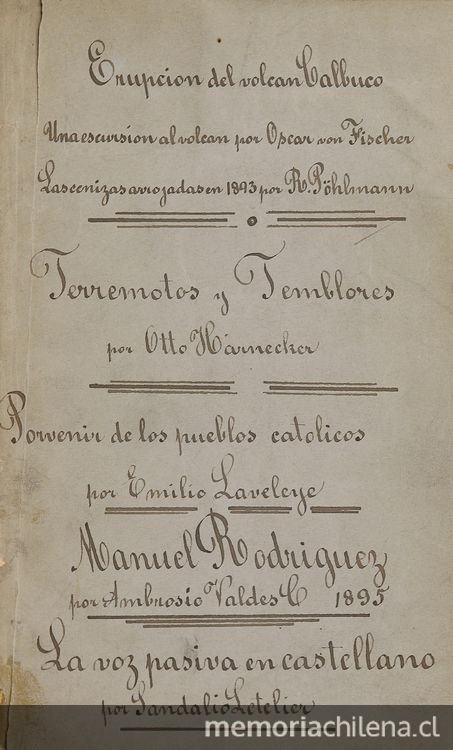 Erupcion del volcan Calbuco
Una escursion al volcan por Oscar von Fischer
Las cenizas arrojadas en 1893 por R. Pöhlmann
Terremotos y Temblores
por Otto Härnecker
Porvenir de los pueblos catolicos
por Emilio Laveleye
Manuel Rodriguez
por Ambrosio Valdes C 1895
La voz pasiva en castellano
por Sandalio Letelier
memoriachilena.cl